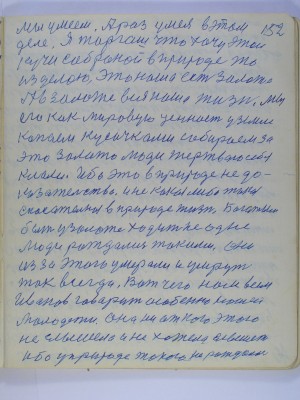 мы умеем, А раз умея в этом 152
деле, Я торгаш что хочу этой
кучи собраной в природе то
и зделаю, Это наше есть золото
А в золоте вся наша жизнь, мы
его как мировую ценность у земле
копаем кусочками собираем за
это золото люди жертвою себя
клали. Ибо это в природе не до-
казательство, и не какая либо такая
спасательная в природе жизнь, Богатым
быть у золоте ходить не одне
люди рождались такими, они
из за этого умерали и умрут
так всегда, Вот чего нам всем
Иванов говорит особенно нашей
молодежи. Она ни от кого этого
не слышела и не хотела слышать
ибо у природе такого не рождали